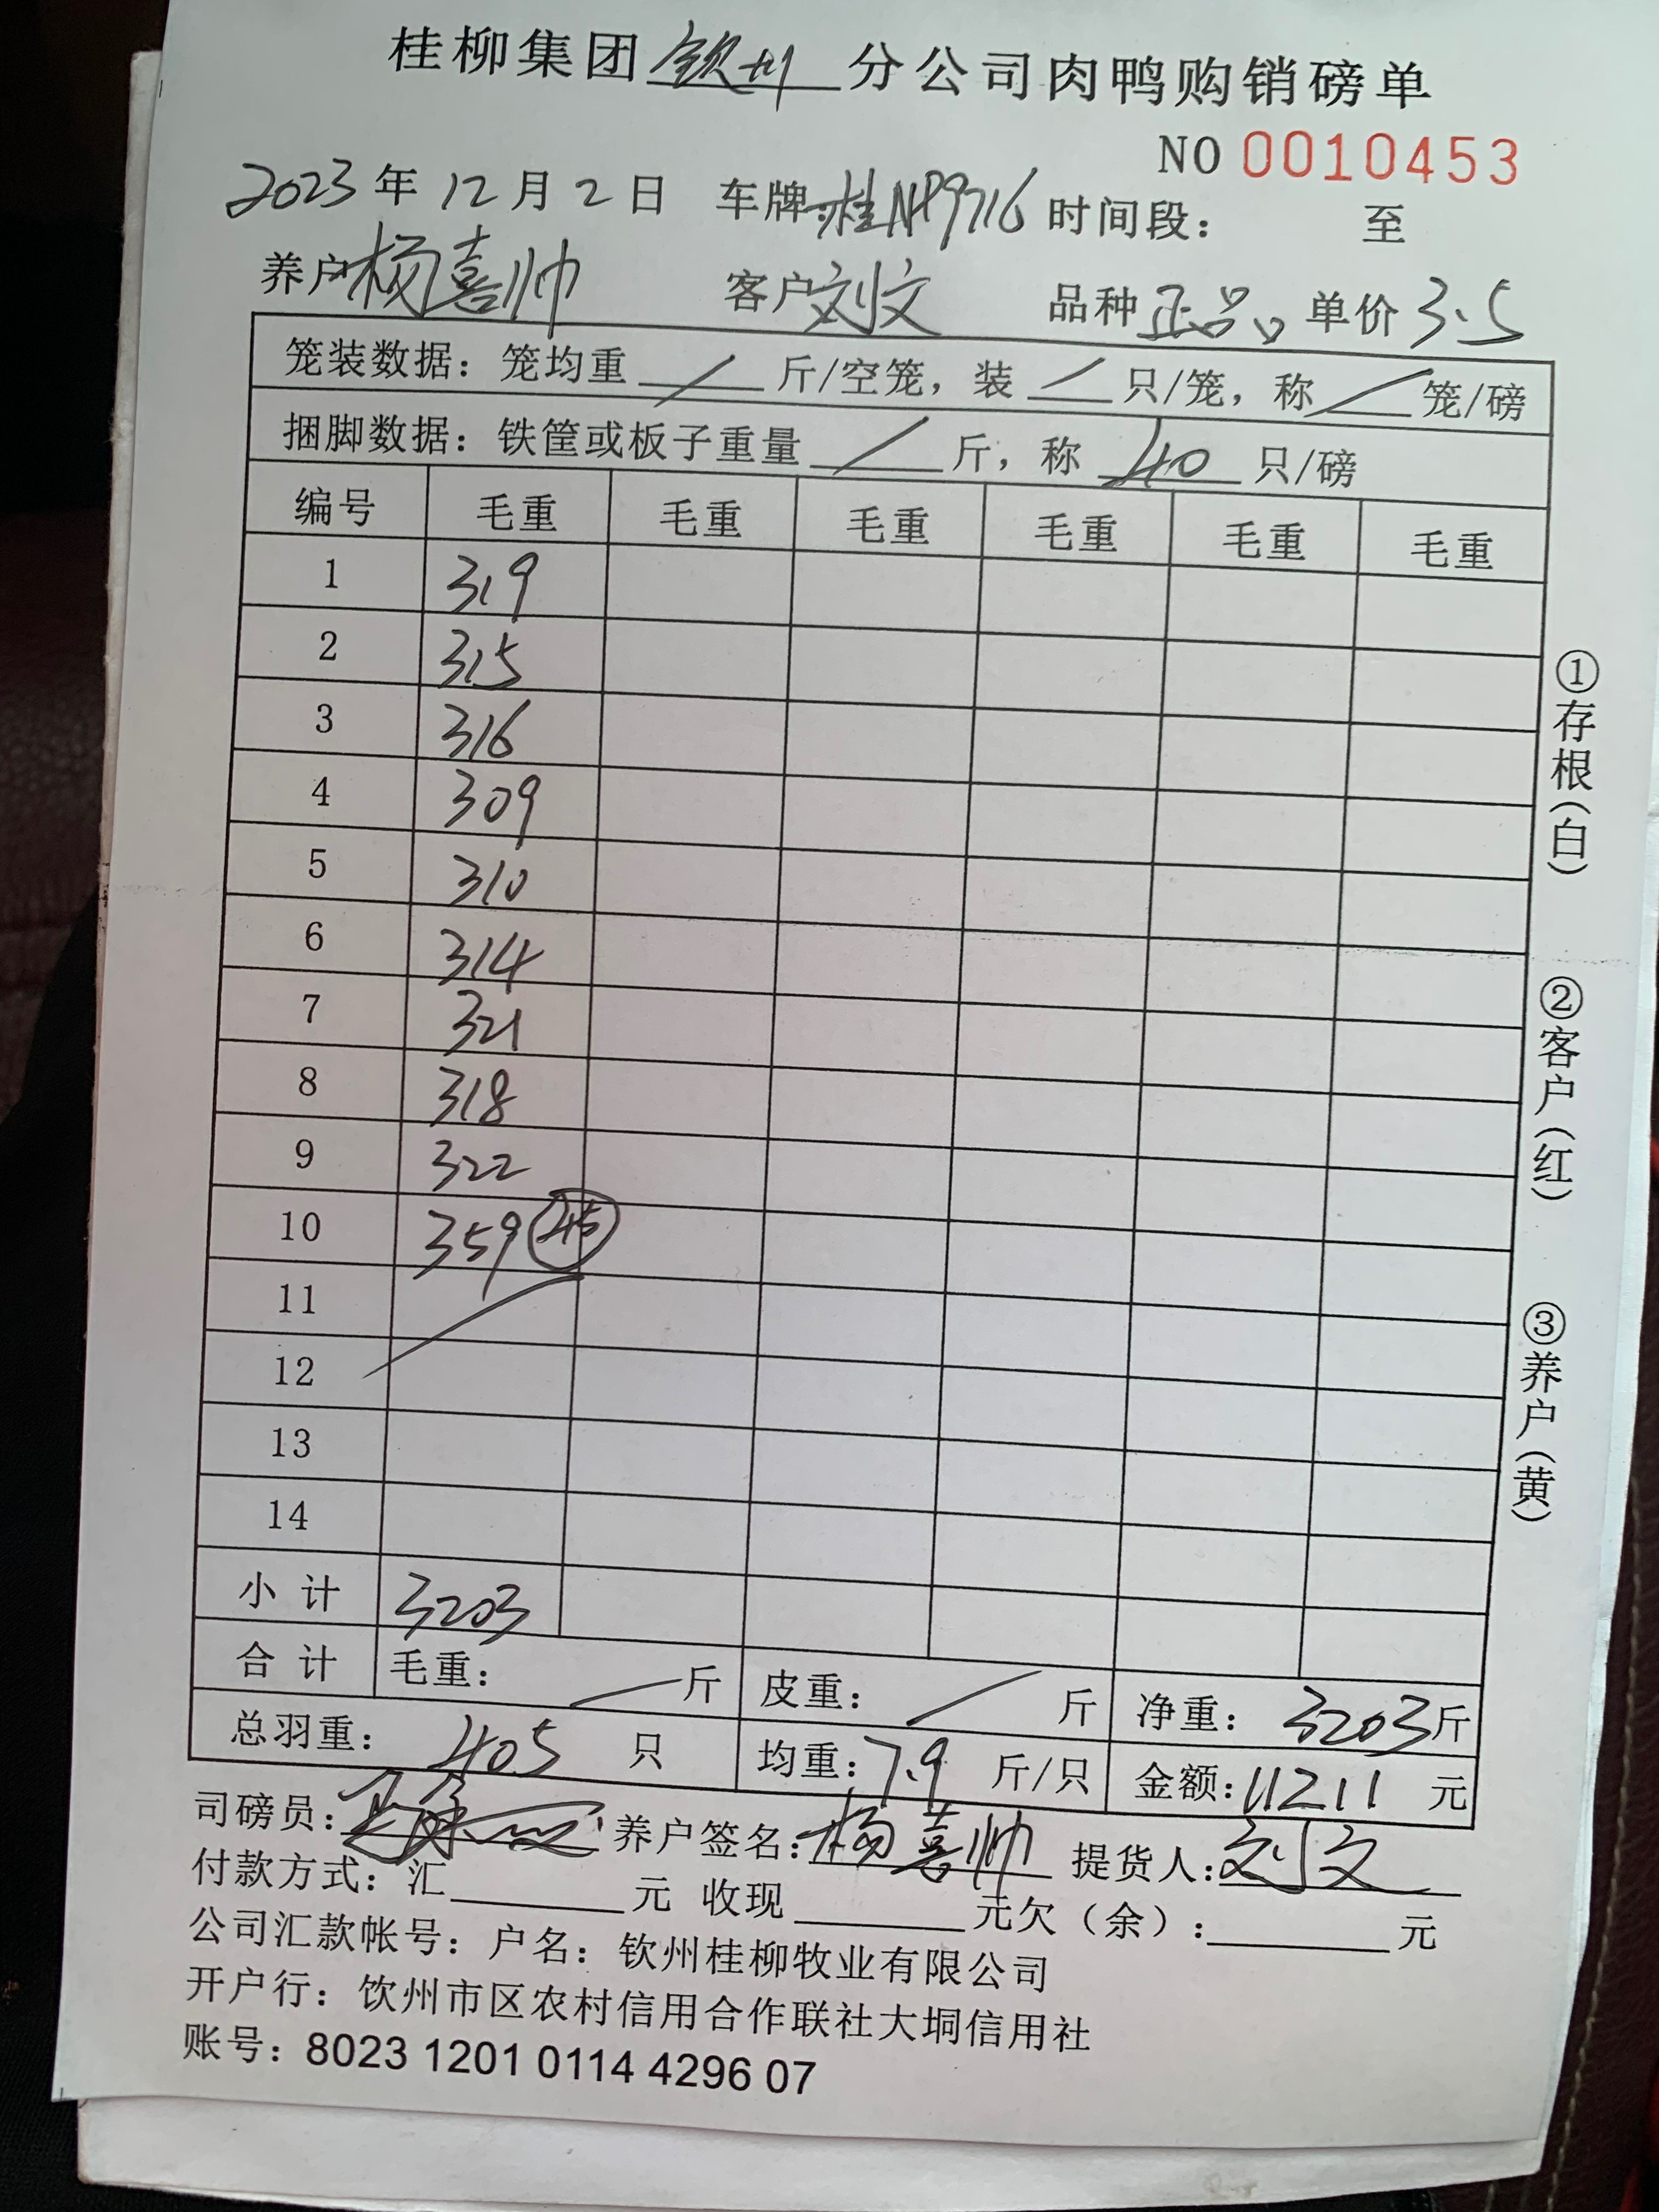 桂柳集团钦州分公司肉鸭购销磅单
NO 0010453
2023年12月2日 车牌:桂NP9716 时间段： 至
养户杨喜帅 客户刘文 品种正品 单价3.5
笼装数据：笼均重／斤/空笼，装／只/笼，称／笼/磅
捆脚数据：铁筐或板子重量／斤，称40只/磅
编号 毛重 毛重 毛重 毛重 毛重 毛重
1 319
2 315
3 316
4 309
5 310
6 314
7 321
8 318
9 322
10 359 45
11
12
13
14
小计 3203
合计 毛重：／斤 皮重：／斤 净重：3203斤
总羽重：405只 均重:7.9斤/只 金额:11211元
司磅员: 养户签名:杨喜帅 提货人:刘文
付款方式：汇 元 收现 元欠（余）: 元
公司汇款帐号：户名：钦州桂柳牧业有限公司
开户行：饮州市区农村信用合作联社大垌信用社
账号：8023 1201 0114 4296 07
①存根(白)
②客户(红)
③养户(黄)